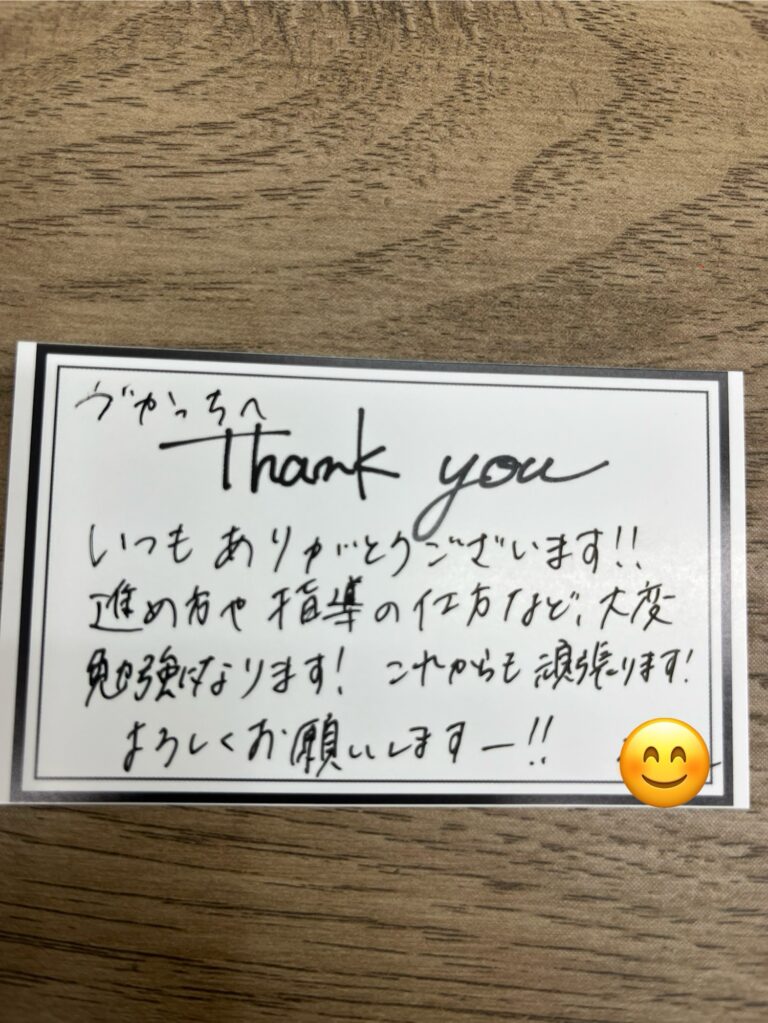 づかっちへ
Thank you
いつもありがとうございます!!
進め方や指導の仕方など、大変
勉強になります! これからも頑張ります!
よろしくお願いしますー!!